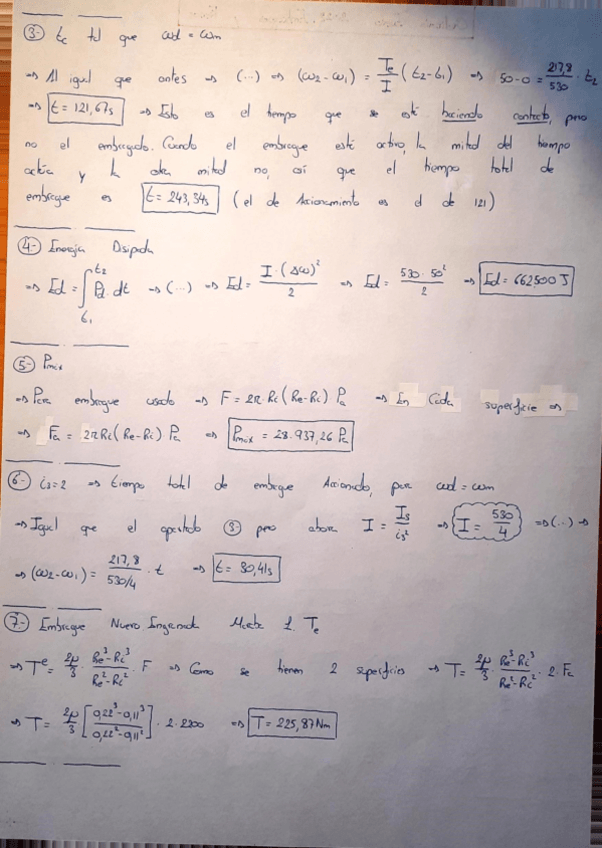 3- tc tal que ωd = ωm
⇒ Al igual que antes ⇒ (...) ⇒ (ω2-ω1) = Te/I (t2-t1) ⇒ 50-0 = 217,8/530 · t2
⇒ t = 121,67s ⇒ Esto es el tiempo que se esté haciendo contacto, pero
no el embragado. Cuando el embrague esté activo, la mitad del tiempo
actúa y la otra mitad no, así que el tiempo total de
embrague es t = 243,34s (el de Accionamiento es el de 121)
4- Energía Disipada
⇒ Ed = ∫t1 t2 Pd · dt ⇒ (...) ⇒ Ed = I · (Δω)²/2 ⇒ Ed = 530 · 50²/2 ⇒ Ed = 662500 J
5- Pmáx
⇒ Para embrague usado ⇒ F = 2π · Ri (Re-Ri) · Pa ⇒ En Cada superficie ⇒
⇒ Fa = 2π Ri (Re-Ri) · Pa ⇒ Pmáx = 28.937,26 Pa
6- i3=2 ⇒ tiempo total de embrague Accionado, para ωd = ωm
⇒ Igual que el apartado 3- pero ahora I = I3/i3² ⇒ I = 530/4 ⇒ (...) ⇒
⇒ (ω2-ω1) = 217,8/530/4 · t ⇒ t = 30,41s
7- Embrague Nuevo Te
⇒ Te = 2μ/3 · Re³-Ri³/Re²-Ri² · F ⇒ Como se tienen 2 superficies ⇒ T = 2μ/3 · Re³-Ri³/Re²-Ri² · 2 · Fa
⇒ T = 2μ/3 [0,22³-0,11³/0,22²-0,11²] · 2 · 2200 ⇒ T = 225,87 Nm